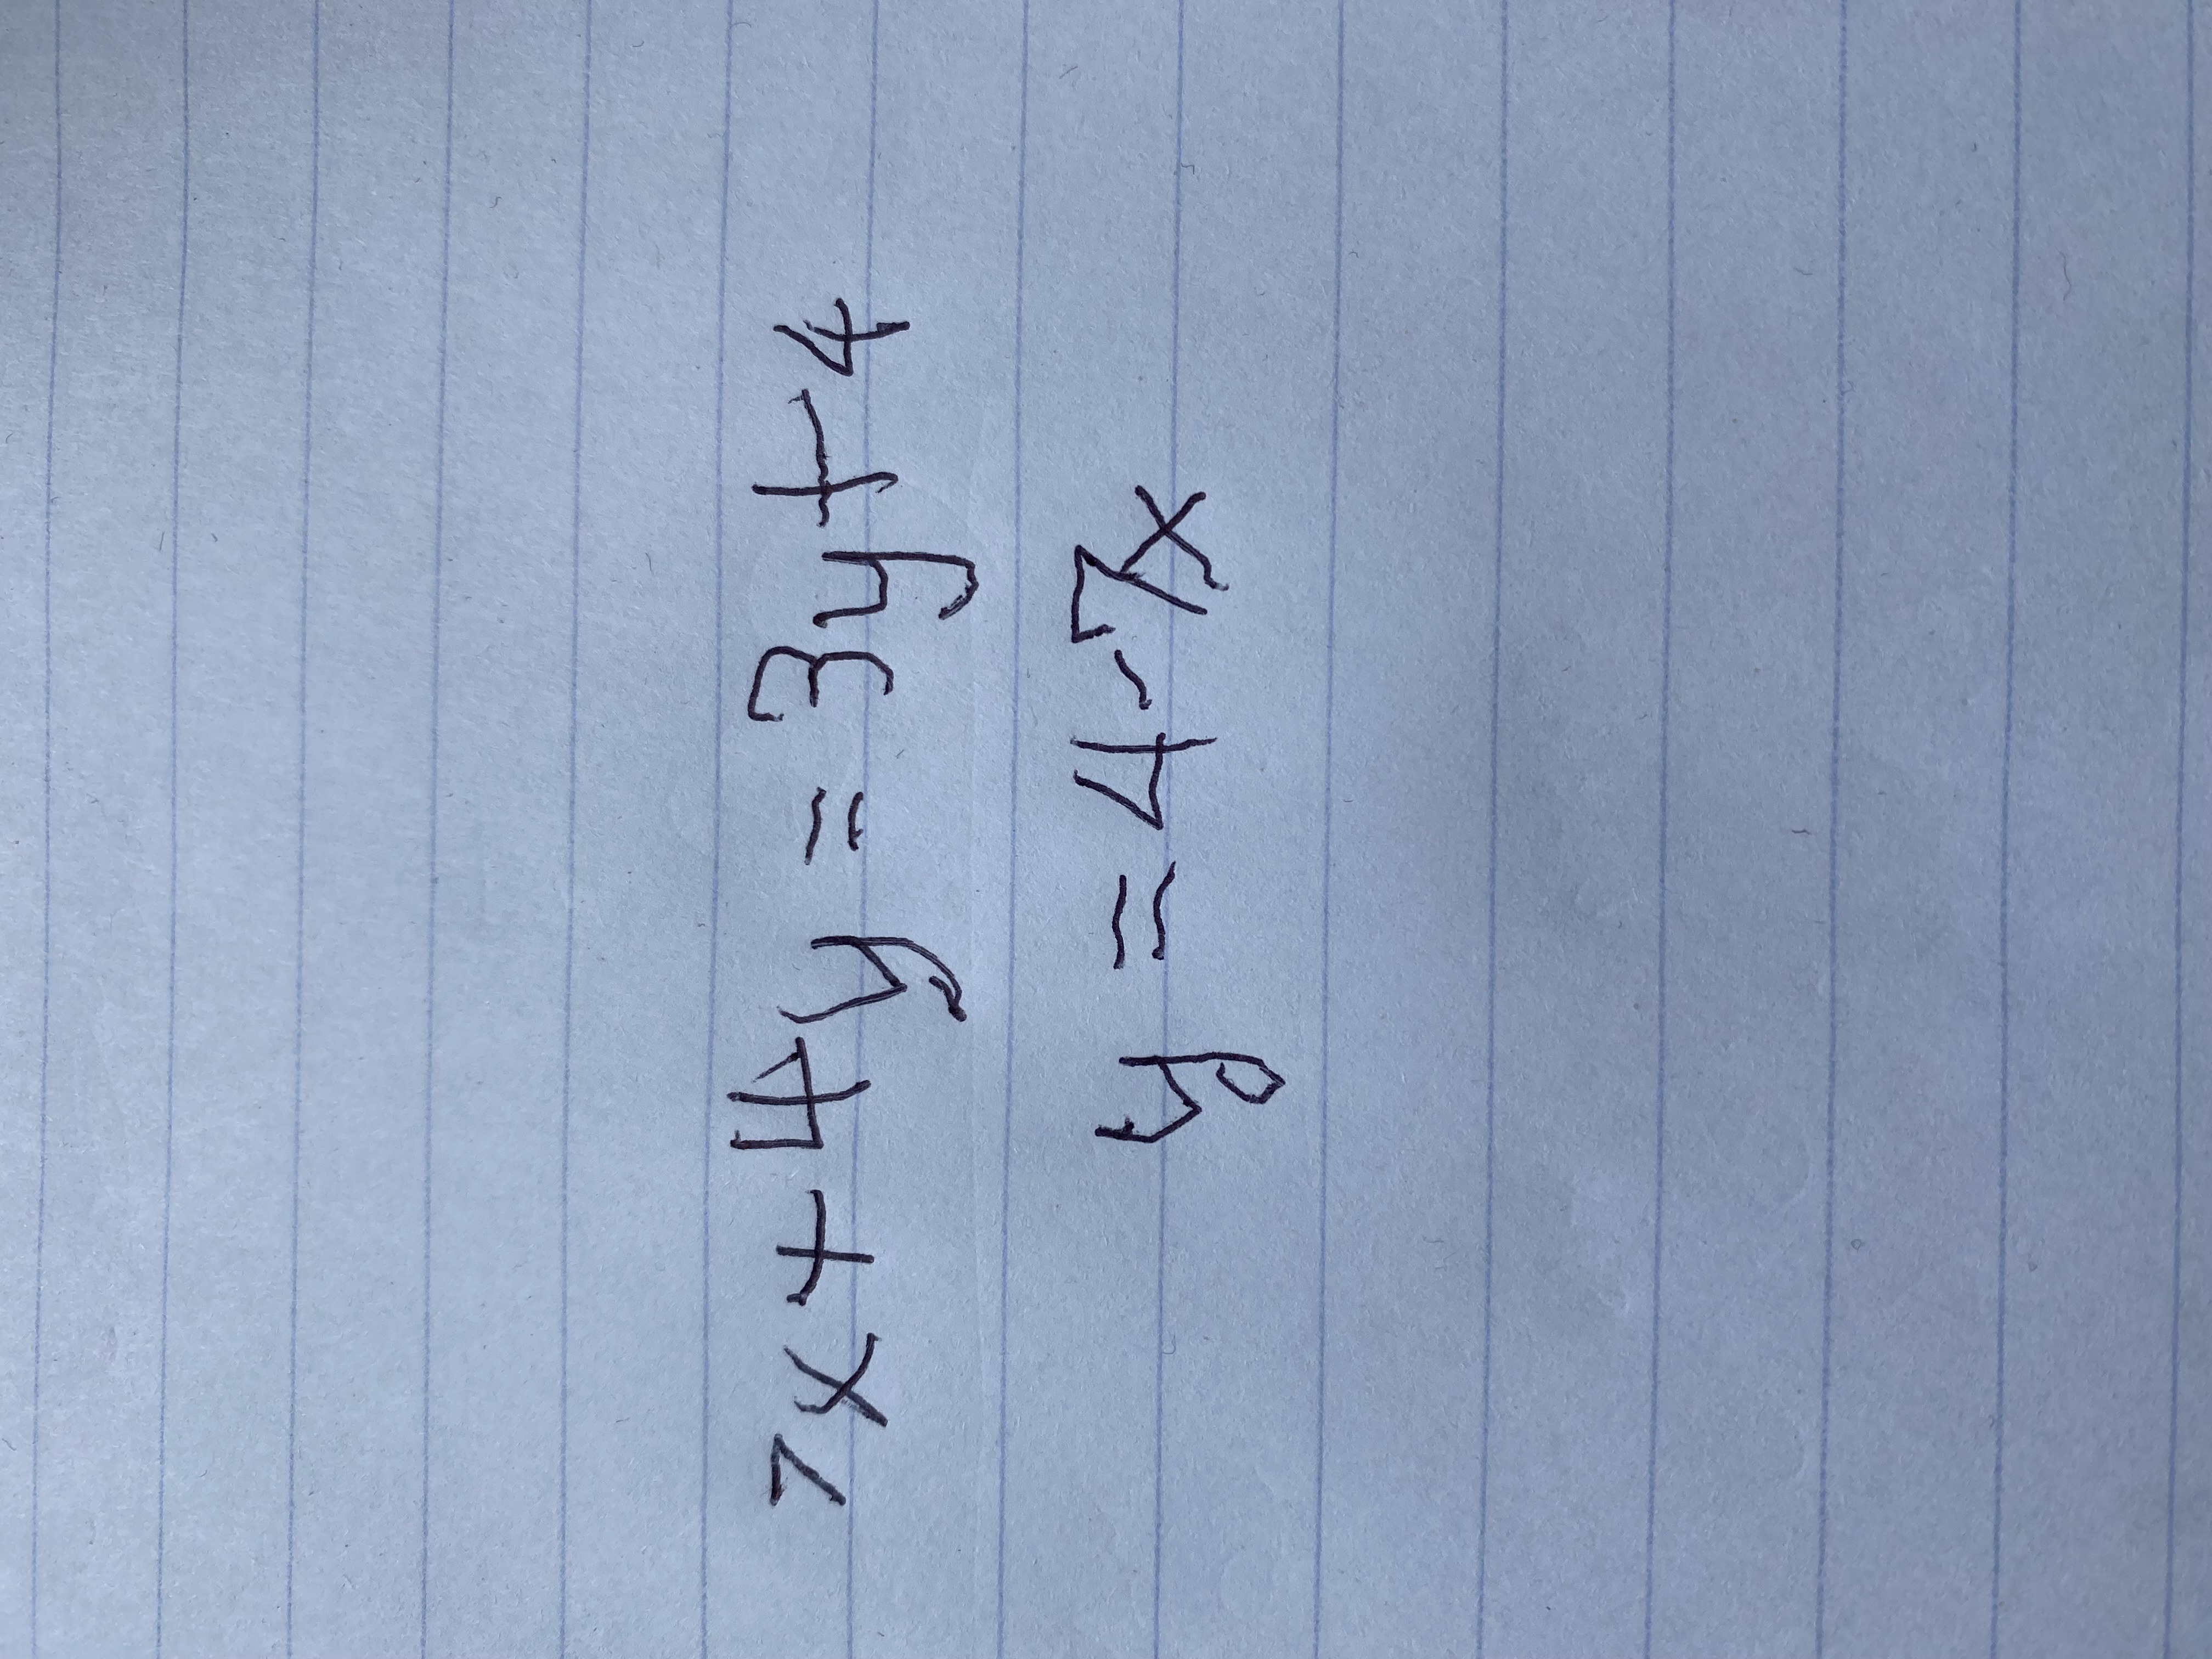 7x + 4y = 3y + 4
y = 4 - 7x